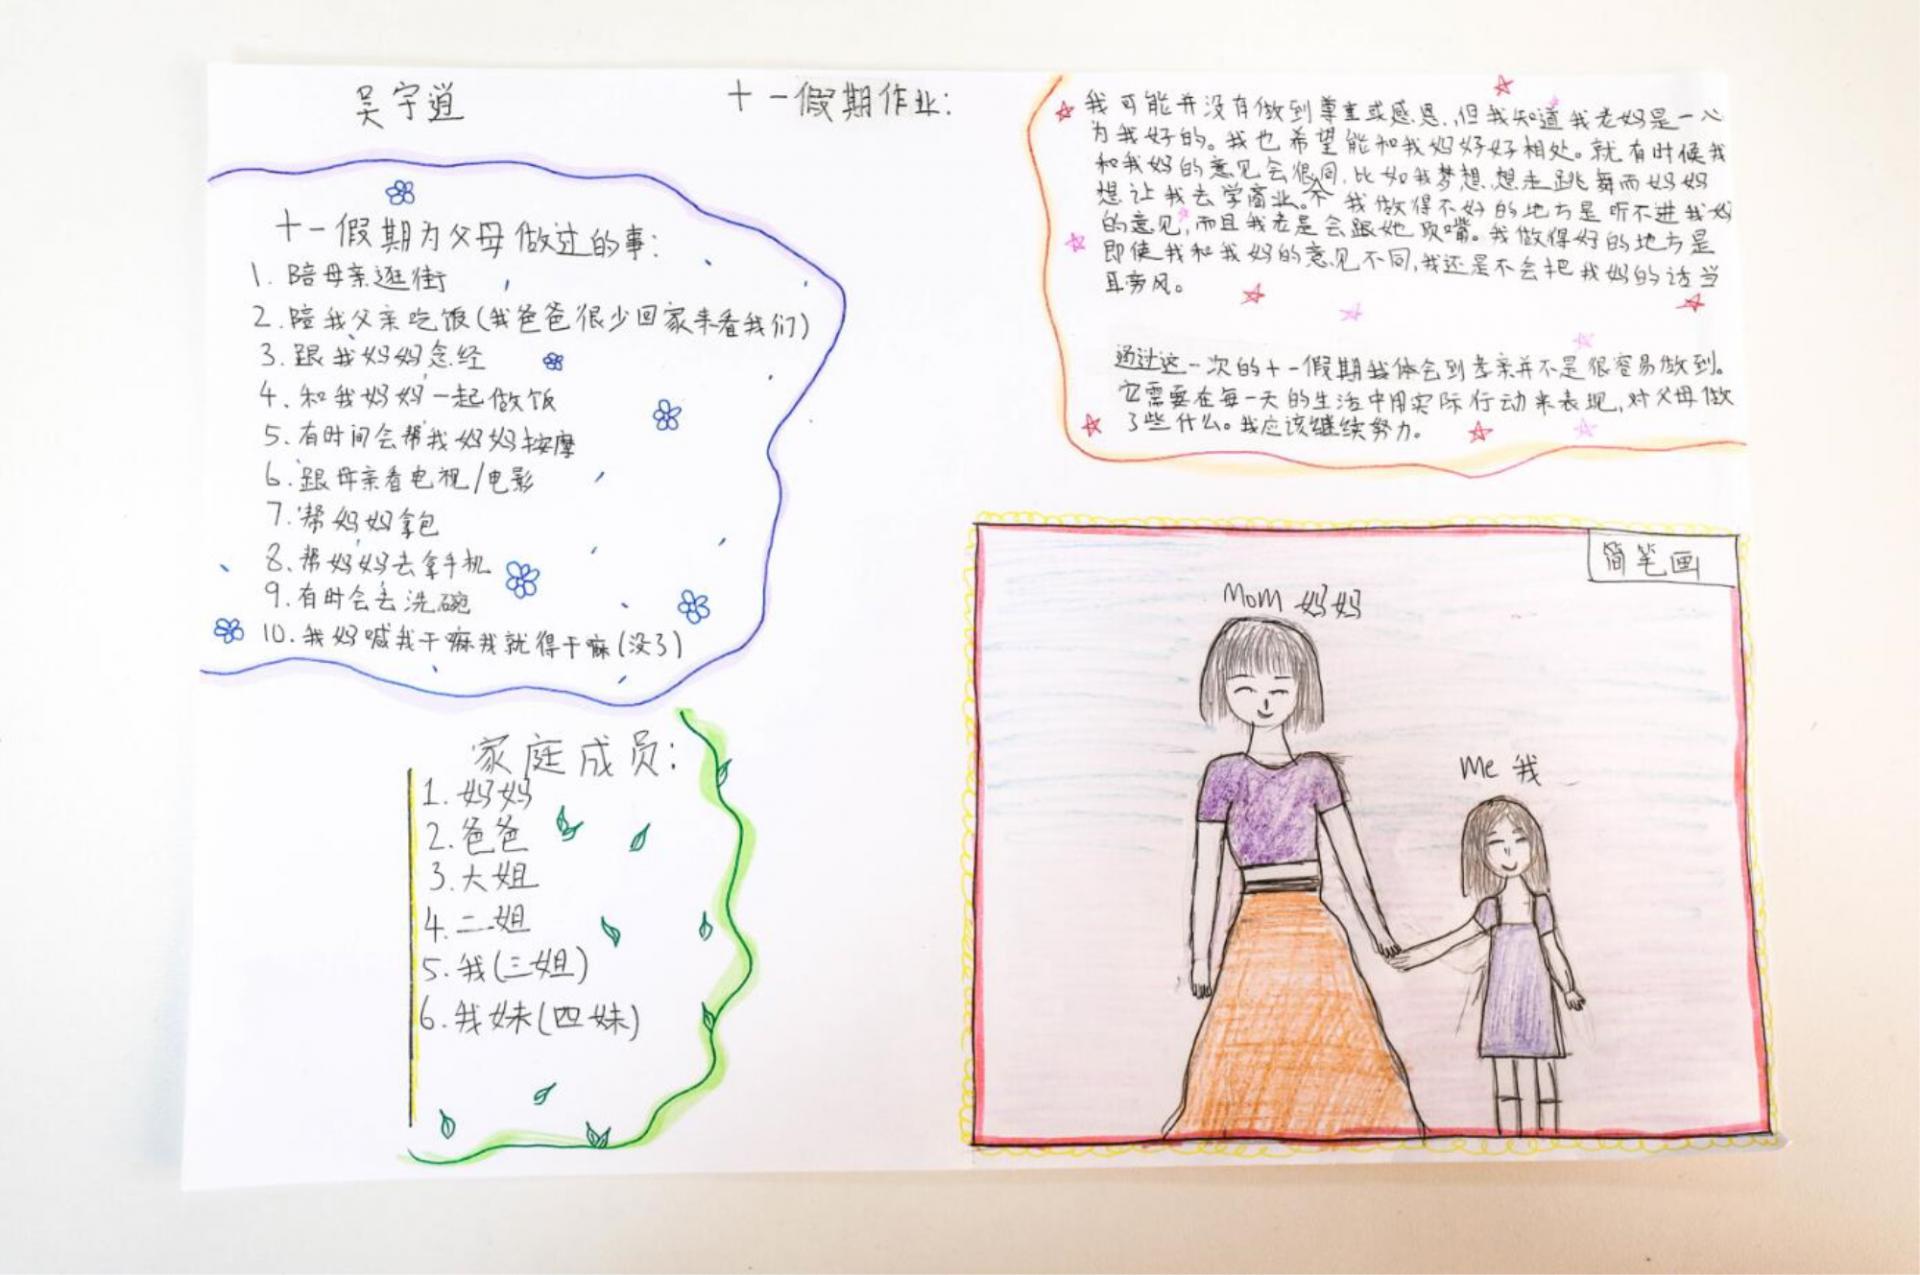 吴宇逍
十一假期作业:
十一假期为父母做过的事:
1. 陪母亲逛街
2. 陪我父亲吃饭(我爸爸很少回家来看我们)
3. 跟我妈妈念经
4. 和我妈妈一起做饭
5. 有时间会帮我妈妈按摩
6. 跟母亲看电视/电影
7. 帮妈妈拿包
8. 帮妈妈去拿手机
9. 有时会去洗碗
10. 我妈喊我干嘛我就得干嘛(没了)
家庭成员:
1. 妈妈
2. 爸爸
3. 大姐
4. 二姐
5. 我(三姐)
6. 我妹(四妹)
我可能并没有做到尊重或感恩,但我知道我老妈是一心
为我好的。我也希望能和我妈好好相处。就有时候我
和我妈的意见会很不同,比如我梦想想走跳舞而妈妈
想让我去学商业。我做得不好的地方是听不进我妈
的意见,而且我老是会跟她顶嘴。我做得好的地方是
即使我和我妈的意见不同,我还是不会把我妈的话当
耳旁风。
通过这一次的十一假期我体会到孝亲并不是很容易做到。
它需要在每一天的生活中用实际行动来表现,对父母做
了些什么。我应该继续努力。
简笔画
Mom 妈妈
Me 我